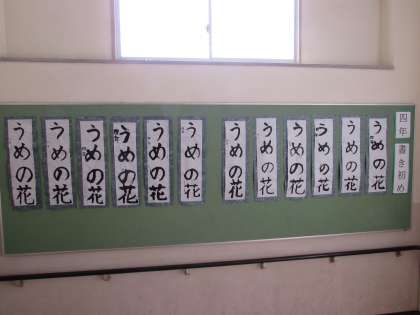 四年 書き初め
うめの花
うめの花
うめの花
うめの花
うめの花
うめの花
うめの花
うめの花
うめの花
うめの花
うめの花
うめの花